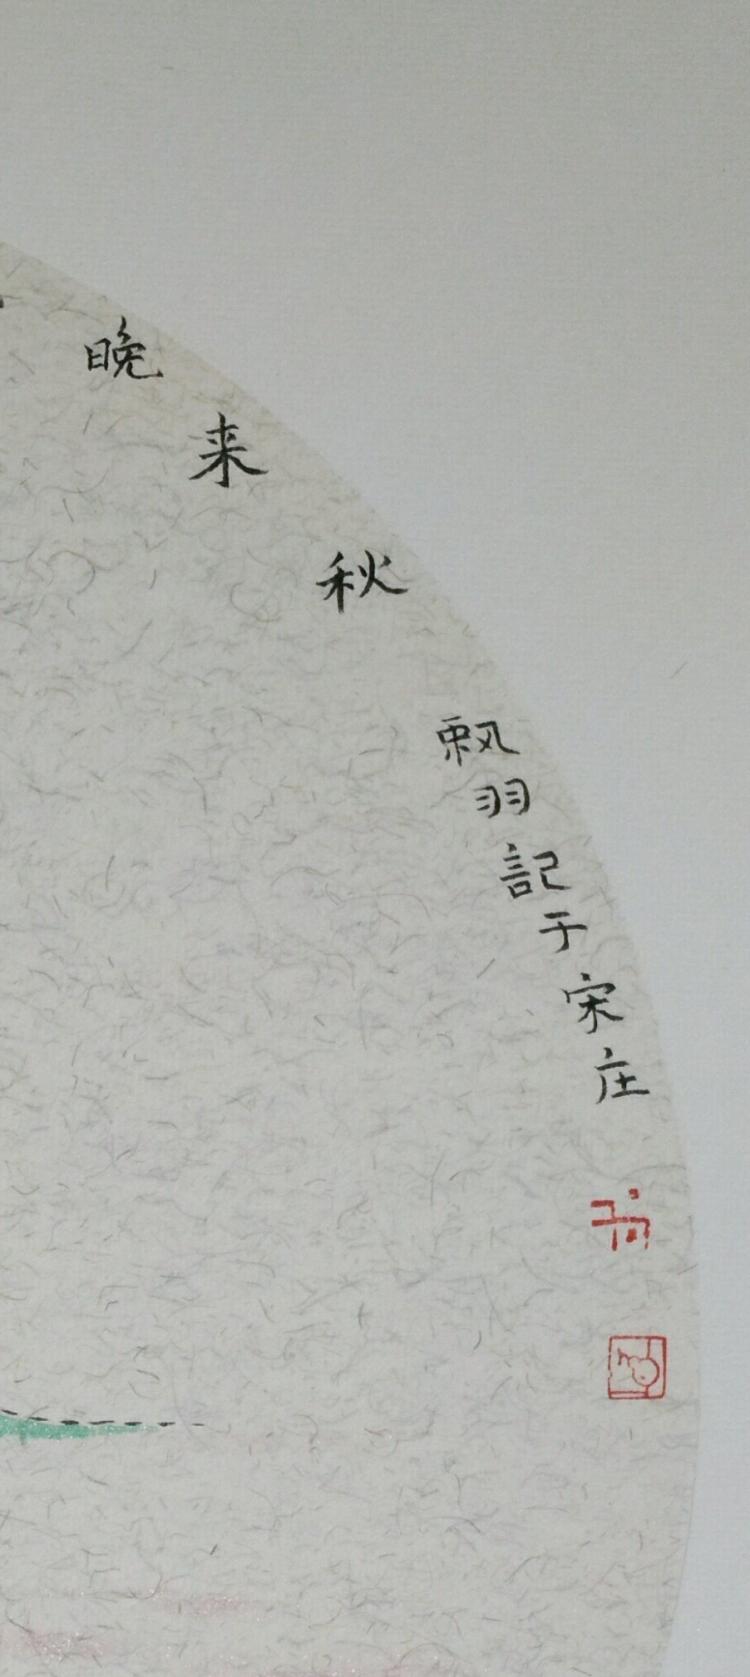 晚来秋
飘羽記于宋庄